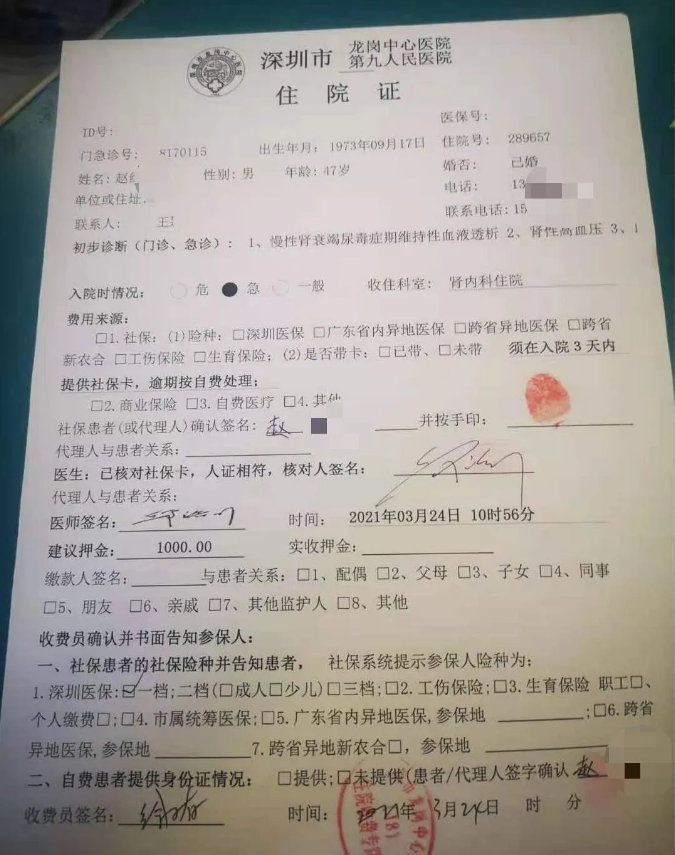 深圳市 龙岗中心医院
第九人民医院
住院证
医保号:
ID号:
门急诊号: 8170115 出生年月: 1973年09月17日 住院号: 289657
姓名: 赵 性别: 男 年龄: 47岁 婚否: 已婚
单位或住址: 电话: 13
联系人: 王 联系电话: 15
初步诊断(门诊、急诊): 1、慢性肾衰竭尿毒症期维持性血液透析 2、肾性高血压 3、
入院时情况: ○危 ●急 ○一般 收住科室: 肾内科住院
费用来源:
□1.社保: (1)险种: □深圳医保 □广东省内异地医保 □跨省异地医保 □跨省
新农合 □工伤保险 □生育保险; (2)是否带卡: □已带、□未带 须在入院3天内
提供社保卡,逾期按自费处理;
□2.商业保险 □3.自费医疗 □4.其他
社保患者(或代理人)确认签名: 赵 并按手印:
代理人与患者关系:
医生: 已核对社保卡,人证相符,核对人签名:
代理人与患者关系:
医师签名: 时间: 2021年03月24日 10时56分
建议押金: 1000.00 实收押金:
缴款人签名: 与患者关系: □1、配偶 □2、父母 □3、子女 □4、同事
□5、朋友 □6、亲戚 □7、其他监护人 □8、其他
收费员确认并书面告知参保人:
一、社保患者的社保险种并告知患者, 社保系统提示参保人险种为:
1.深圳医保:☑一档;二档(□成人□少儿)□三档;□2.工伤保险;□3.生育保险 职工□、
个人缴费□;□4.市属统筹医保;□5.广东省内异地医保,参保地 ;□6.跨省
异地医保,参保地 7.跨省异地新农合□,参保地
二、自费患者提供身份证情况: □提供;□未提供(患者/代理人签字确认 赵
收费员签名: 时间: 2021年3月24日 时 分